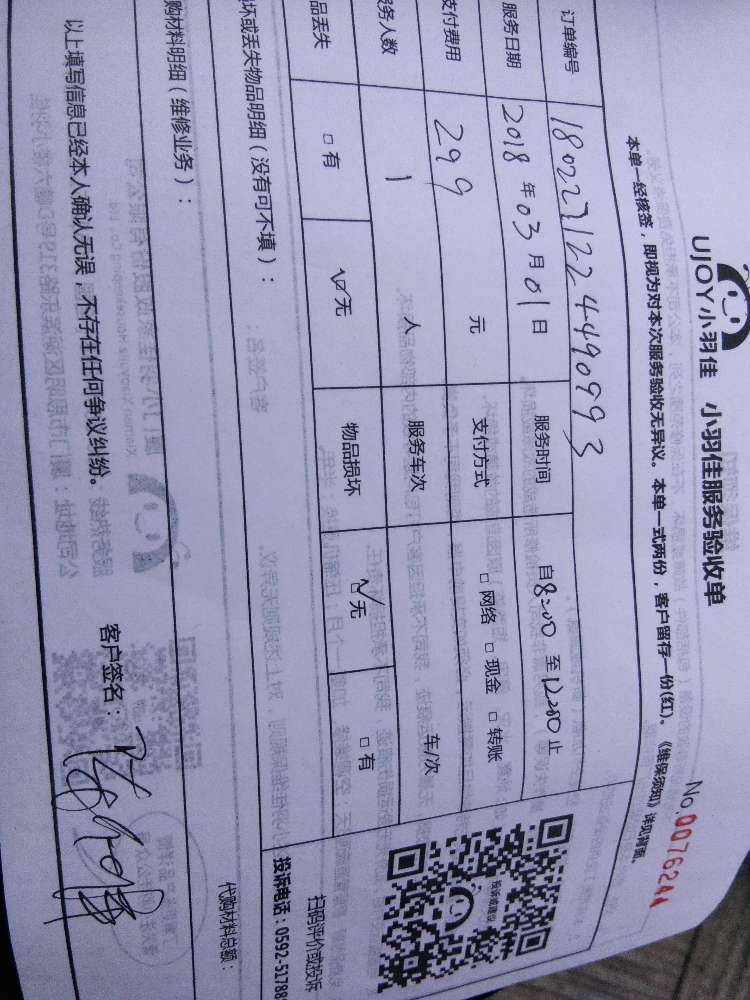 UJOY小羽佳 小羽佳服务验收单
No.0076244
本单一经核签，即视为对本次服务验收无异议。本单一式两份，客户留存一份(红)。《维保须知》详见背面。
订单编号
服务日期 2018 年 03 月 01 日 服务时间 自 8:00 至 12:00 止
支付费用 299 元 支付方式 □ 网络 □ 现金 □ 转账
务人数 1 人 服务车次 车/次
品丢失 □ 有 □ 无 物品损坏 □ 无 □ 有
投诉或建议
扫码评价或投诉
投诉电话：0592-51788
坏或丢失物品明细（没有可不填）：
购材料明细（维修业务）：
代购材料总额：
以上填写信息已经本人确认无误，不存在任何争议纠纷。 客户签名：